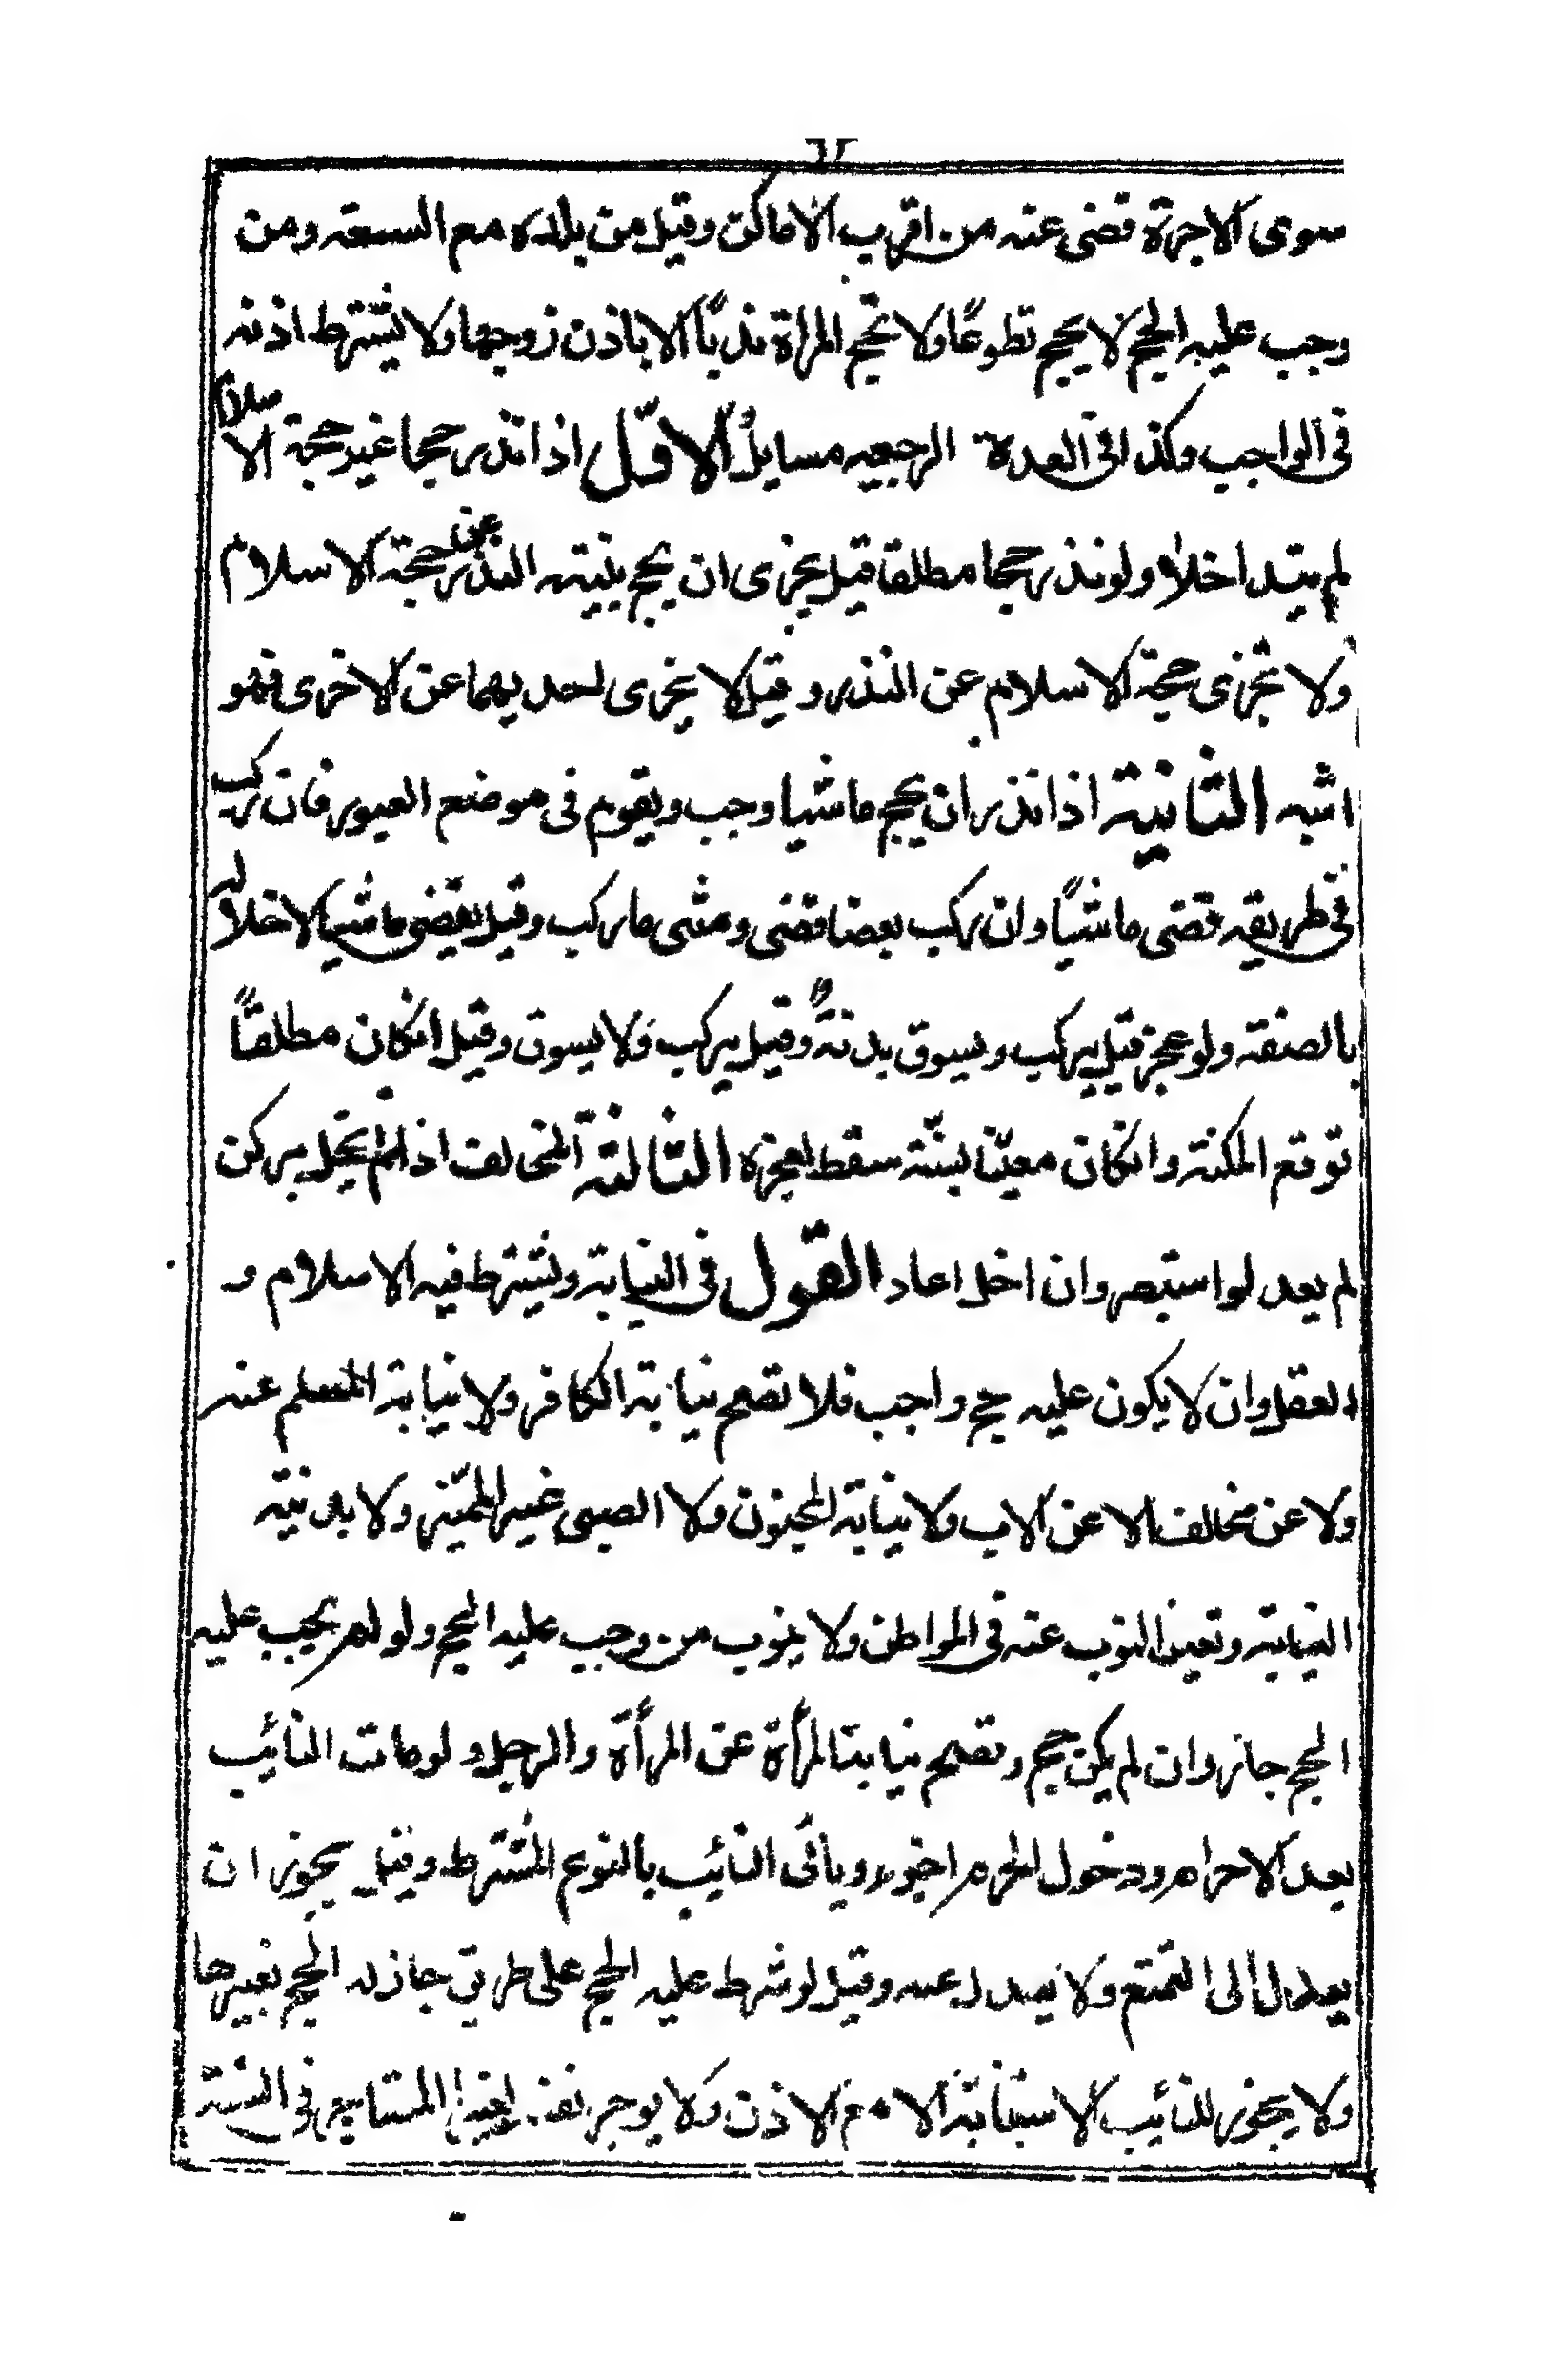 ٦٢
سوى الاجرة قضى عنه من اقرب الاماكن وقيل من بلده مع السعة ومن
وجب عليه الحج لا يحج تطوعًا ولا تحج المراة ندبًا الا باذن زوجها ولا يشترط اذنه
فى الواجب وكذا فى العدة الرجعيه مسايل الاوّل اذا نذر حجا غير حجة الاسلام
لم يتداخلا ولو نذر حجا مطلقا قيل يجزى ان يحج بنيته النذر عن حجة الاسلام
ولا تجزى حجة الاسلام عن النذر و قيل لا يجزى احديهما عن الاخرى فهو
اشبه الثانية اذا نذر ان يحج ماشيا وجب ويقوم فى موضع العبور فان ركب
فى طريقه قضى ماشيًا وان ركب بعضا قضى ومشى ما ركب وقيل يقضى ماشيا لاخلاله
بالصفة ولو عجز قيل يركب ويسوق بدنةً وقيل يركب ولا يسوق وقيل انكان مطلقًا
توقع المكنة وانكان معيّنا بسنّة سقط لعجزه الثالثة المخالف اذا لم يخل بركن
لم يعد لو استبصر وان اخل اعاد القول فى النيابة ويشترط فيه الاسلام و
العقل وان لا يكون عليه حج واجب فلا تصح نيابة الكافر ولا نيابة المسلم عنه
ولا عن مخالف الا عن الاب ولا نيابة المجنون ولا الصبى غير المميّز ولا بد نية
النيابة وتعين النوب عنه فى المواطن ولا ينوب من وجب عليه الحج ولو لم يجب عليه
الحج جاز وان لم يكن حج وتصح نيابة المرأة عن المرأة والرجل ولو مات النائيب
بعد الاحرام ودخول الحرم اجزء ويأتى النائيب بالنوع المشترط وقيل يجوز ان
يعدل الى التمتع ولا يعدل عنه وقيل لو شرط عليه الحج على طريق جاز له الحج بغيرها
ولا يجوز للنائيب الاستنابة الا مع الاذن ولا يوجر نفسه لغير المستاجر فى السنة